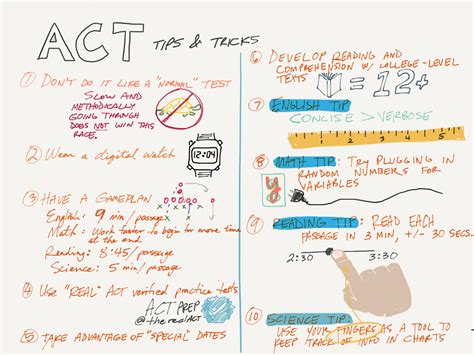 ACT TIPS & TRICKS
① DON'T DO IT LIKE A "NORMAL" TEST
SLOW AND
METHODICALLY
GOING THROUGH
DOES NOT WIN THIS
RACE.
② Wear a digital watch
12:04
③ HAVE A GAMEPLAN
English: 9 min/passage
Math: Work faster to begin for more time
at the end
Reading: 8:45/passage
Science: 5 min/passage
④ Use "REAL" ACT verified practice tests
ACT PREP
@therealACT
⑤ TAKE ADVANTAGE OF "SPECIAL" DATES
⑥ DEVELOP READING AND
COMPREHENSION W/ COLLEGE-LEVEL
TEXTS
= 12+
⑦ ENGLISH TIP
CONCISE > VERBOSE
1 2 3 4 5
⑧ MATH TIP: TRY PLUGGING IN
RANDOM NUMBERS FOR
VARIABLES
y
⑨ READING TIP: READ EACH
PASSAGE IN 3 MIN, +/- 30 SEC.
2:30 3:30
⑩ SCIENCE TIP:
USE YOUR FINGERS AS A TOOL TO
KEEP TRACK OF INFO IN CHARTS